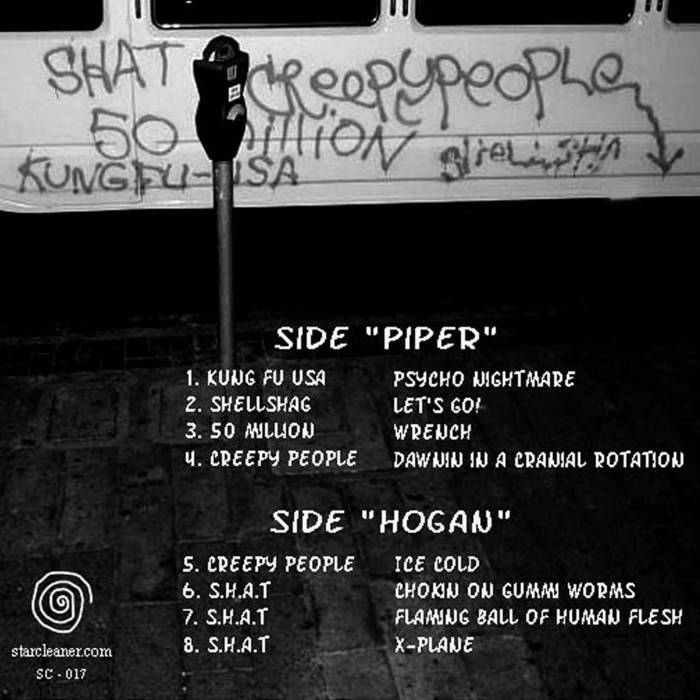 SHAT CREEPYPEOPLE
50 MILLION
KUNGFU-USA
SIDE "PIPER"
1. KUNG FU USA PSYCHO NIGHTMARE
2. SHELLSHAG LET'S GO!
3. 50 MILLION WRENCH
4. CREEPY PEOPLE DAWNIN IN A CRANIAL ROTATION
SIDE "HOGAN"
5. CREEPY PEOPLE ICE COLD
6. S.H.A.T CHOKIN ON GUMMI WORMS
7. S.H.A.T FLAMING BALL OF HUMAN FLESH
8. S.H.A.T X-PLANE
starcleaner.com
SC - 017